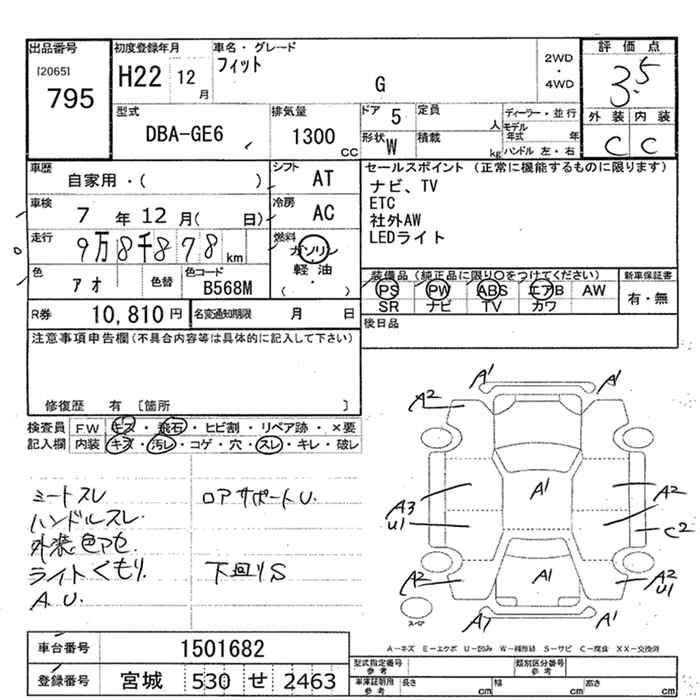 出品番号 初度登録年月 車名・グレード 評価点
[2065] H22 12 月 フィット G 2WD ・ 4WD 3.5
795
型式 排気量 ドア 5 定員 人 ディーラー・並行 外装 内装
DBA-GE6 1300 CC 形状 W 積載 kg モデル年式 年 C C
ハンドル 左・右
車歴 自家用・( ) シフト AT セールスポイント (正常に機能するものに限ります)
車検 7 年 12 月( 日) 冷房 AC ナビ、TV
ETC
社外AW
LEDライト
走行 9万8千878 km 燃料 ガソリン 軽油 ( ・ )
色 アオ 色替 色コード B568M 装備品 (純正品に限り○をつけてください) 新車保証書
PS PW ABS エアB AW 有・無
SR ナビ TV カワ
R券 10,810 円 名変通知期限 月 日 後日品
注意事項申告欄 (不具合内容等は具体的に記入して下さい)
修復歴 有 [箇所 ]
検査員 FW キズ・飛石・ヒビ割・リペア跡・×要
記入欄 内装 キズ・汚レ・コゲ・穴・スレ・キレ・破レ
シートスレ ロアサポートU.
ハンドルスレ
外装色アセ
ライトくもり. 下回りS
A.U.
A1 A1
A2 A2
A1
A3 U1 A2
C2
A2 A1 A2 U1
スペア A1 A1
A－キズ E－エクボ U－凹み W－補修跡 S－サビ C－腐食 XX－交換済
車台番号 1501682
登録番号 宮城 530 せ 2463
型式指定番号 参考 類別区分番号 参考
車庫証明用 参考 長さ cm 幅 cm 高さ cm